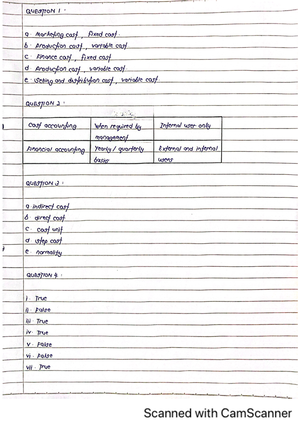 QUESTION 1 .
a Marketing cost, fixed cost
b. Production cost, variable cost
c Finance cost, fixed cost
d Production cost, variable cost
e. Selling and distribution cost, variable cost
QUESTION 2 .
Cost accounting When required by management Internal user only
Financial accounting Yearly / quarterly basis External and internal users
QUESTION 3 .
a indirect cost
b direct cost
c cost unit
d step cost
e. normality
QUESTION 4 .
i. True
ii. False
iii True
iv. True
v. False
vi. False
vii. True
Scanned with CamScanner